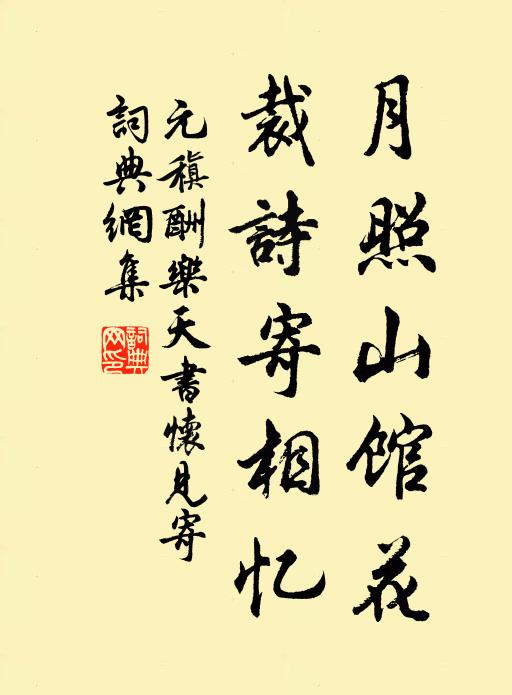 月照山馆花
裁詩寄相忆
元稹酬樂天書懷見寄
詞典網集
詞典网印